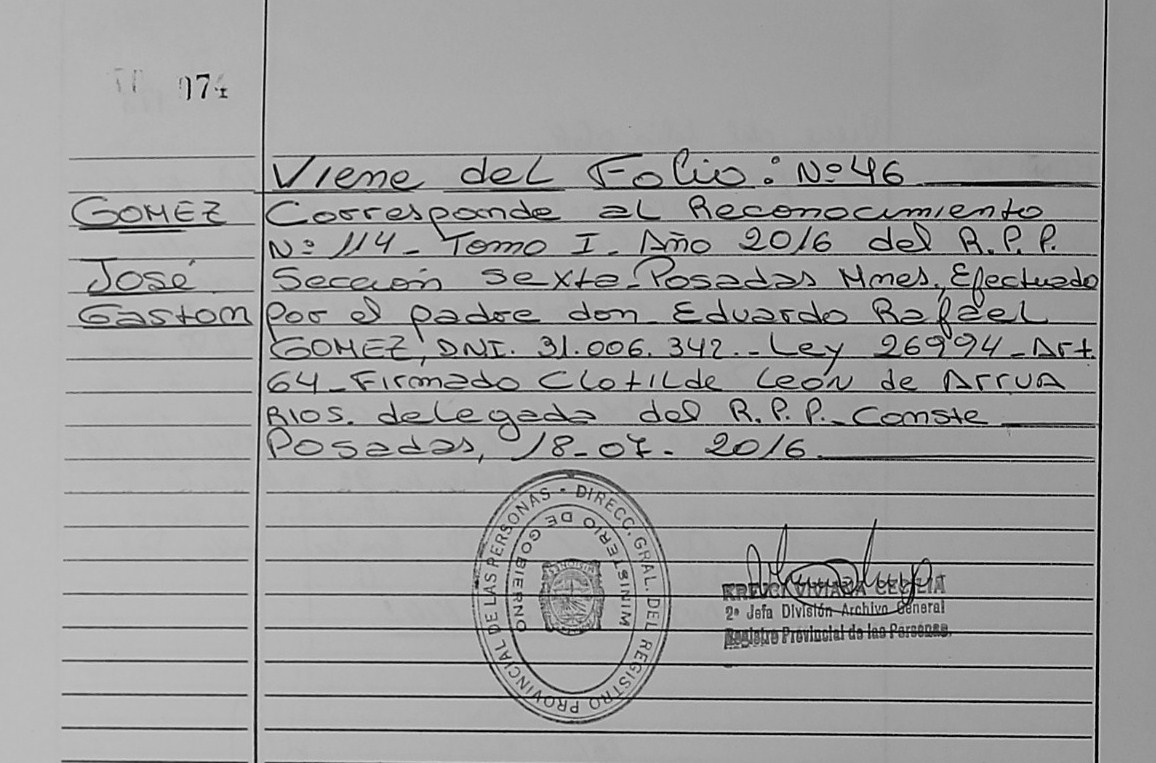 074
Viene del Folio: Nº 46
GOMEZ
Corresponde al Reconocimiento
Nº 114 - Tomo I - Año 2016 del R.P.P.
José
Sección sexta - Posadas Mnes, Efectuado
Gaston
por el padre don Eduardo Rafael
GOMEZ, DNI. 31.006.342.- Ley 26994 - Art
64 - Firmado Clotilde León de Arrua
Rios. delegada del R.P.P. - Conste
Posadas, 18-07-2016
DIRECC. GRAL. DEL REGISTRO PROVINCIAL DE LAS PERSONAS -
MINISTERIO DE GOBIERNO
VIVIANA CECILIA
2ª Jefa División Archivo General
Registro Provincial de las Personas.